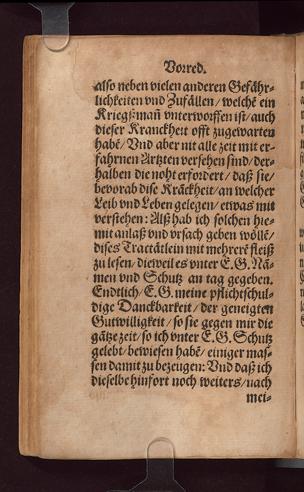 Vorred.
also neben vielen anderen Gefähr⸗
lichkeiten vnd Zufällen / welchē ein
Kriegß⸗mañ vnterworffen ist / auch
dieser Kranckheit offt zugewarten
habē / Vnd aber nit alle zeit mit er⸗
fahrnen Artzten versehen sind / der⸗
halben die noht erfordert / daß sie /
bevorab dise Krāckheit / an welcher
Leib vnd Leben gelegen / etwas mit
verstehen: Alß hab ich solchen hie⸗
mit anlaß vnd vrsach geben wöllē /
dises Tractätlein mit mehrerē fleiß
zu lesen / dieweil es vnter E. G. Nā⸗
men vnd Schutz an tag gegeben.
Endtlich / E. G. meine pflichtschul⸗
dige Danckbarkeit / der geneigten
Gutwilligkeit / so sie gegen mir die
gātze zeit / so ich vnter E. G. Schutz
gelebt / bewiesen habē / einiger mas⸗
sen damit zu bezeugen: Vnd daß ich
dieselbe hinfort noch weiters / nach
mei⸗